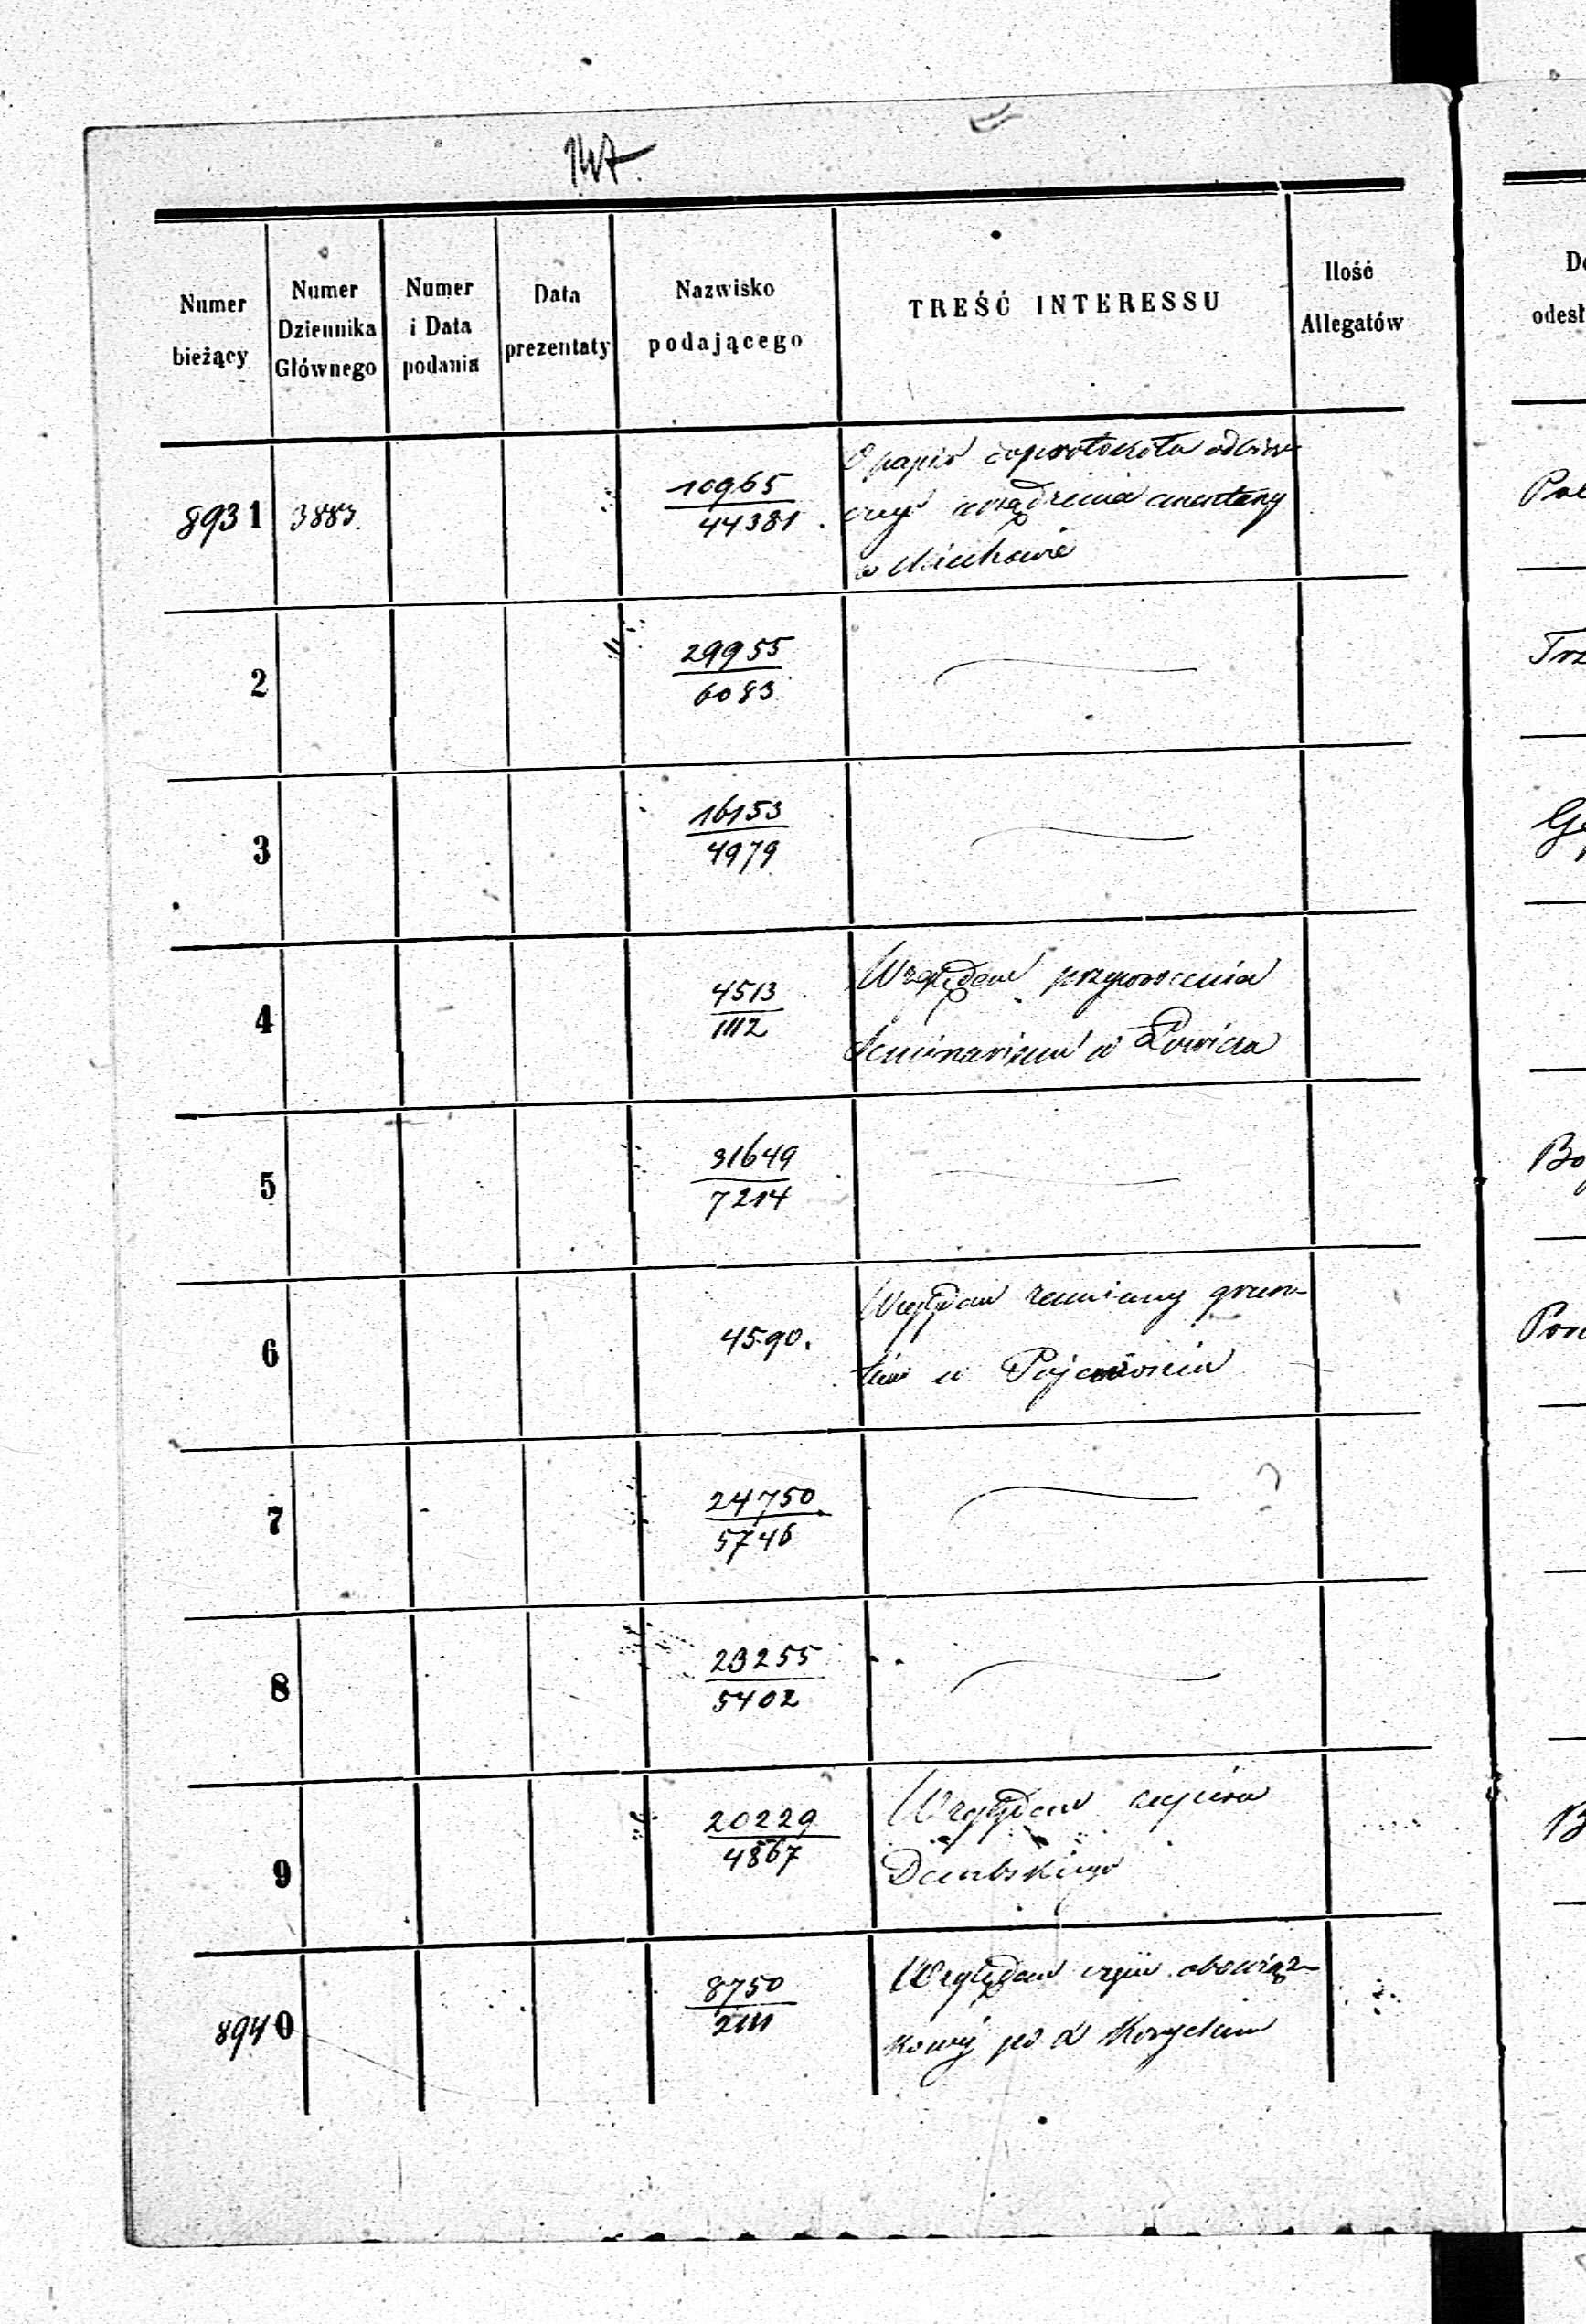 147.
Numer bieżący
Numer Dziennika Głównego
Numer i Data podania
Data prezentaty
Nazwisko podającego
TREŚĆ INTERESSU
Ilość Allegatów
8931 3883. 10965/44381. O papiér odbior-
urządzenia cmentarzy
w Miechowie
2 29955/6083
3 16153/4979
4 4513/1112 Względem przyworcenia
Seminarium w Łowiczu
5 31649/7214
6 4590. Względem zamiany grun-
tów w
7 24750/5746
8 23255/5402
9 20229/4867 Względem
Dembskiego
8940 8750/2111 Względem obowiąz-
kowéj po
Trz
Bo